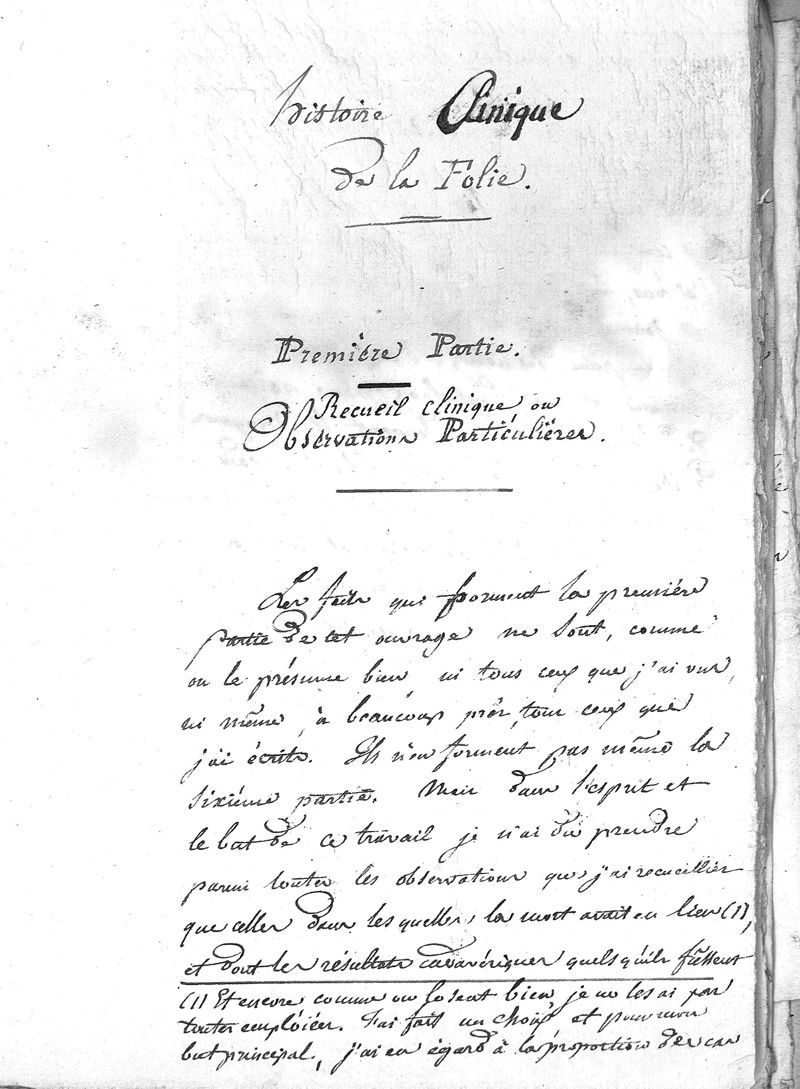 histoire Clinique
de la Folie.
Première Partie.
Recueil clinique, ou
Observations Particuliéres.
Les faits qui forment la premiére
partie de cet ouvrage ne sont, comme
on le présume bien ni tous ceux que j'ai vus,
ni même, à beaucoup près, tous ceux que
j'ai écrits. Ils n'en forment pas même la
sixiéme partie. Mais dans l'esprit et
le but de ce travail je n'ai dû prendre
parmi toutes les observations que j'ai recueillies
que celles dans lesquelles la mort avait eu lieu (1),
et dont les résultats cadavériques quels qu'ils fûssent
(1) Et encore comme on le sent bien, je ne les ai pas
toutes emploiées. J'ai fait un choix et pour mon
but principal, j'ai eu égard à la proportion des cas